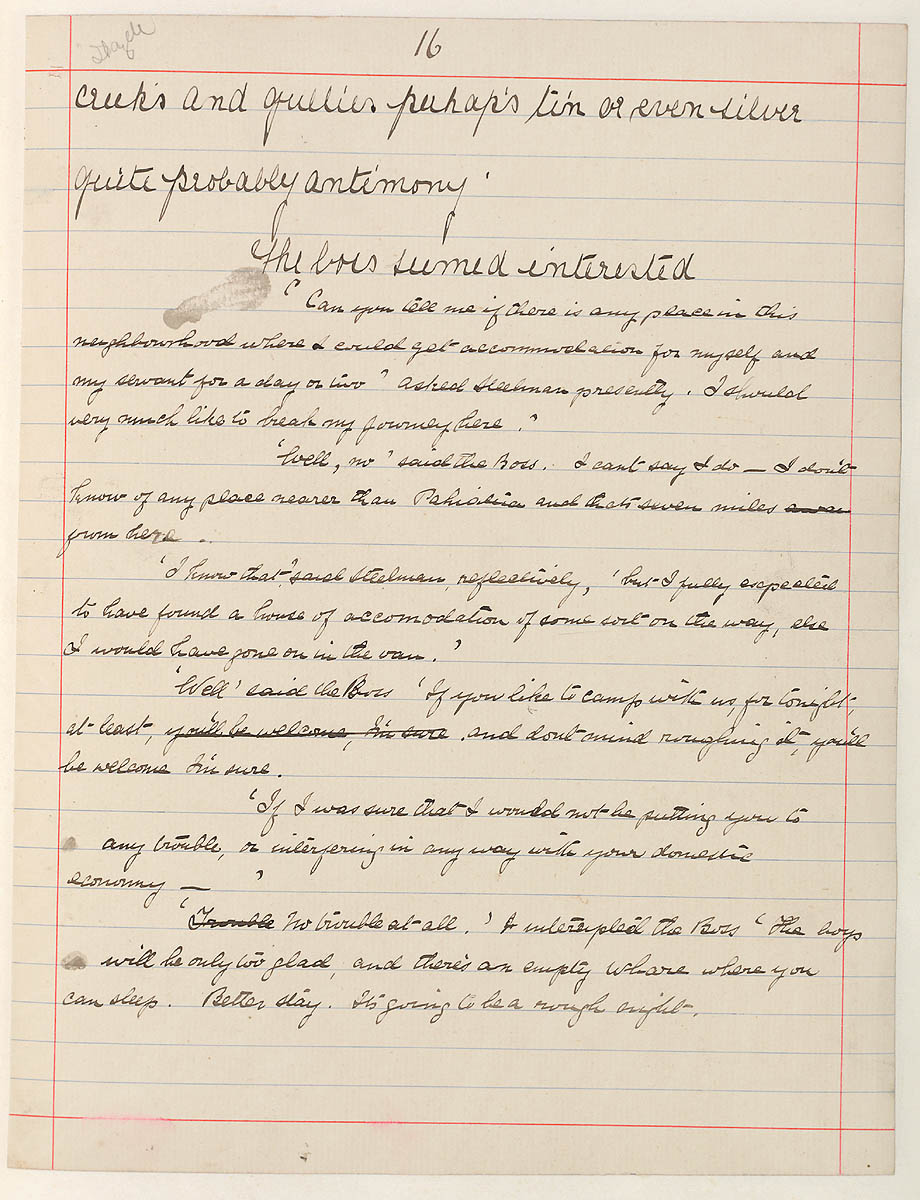 16
creek's and gullies perhap's tin or even silver
quite probably antimony.
The boss seemed interested
"Can you tell me if there is any place in this
neighbourhood where I could get accommodation for myself and
my servant for a day or two" asked Steelman presently. I should
very much like to break my journey here."
'Well, no' said the Boss. I cant say I do — I don't
know of any place nearer than Pahiatua and that's seven miles
from here.
'I know that' said Steelman, reflectively, 'but I fully expected
to have found a house of accomodation of some sort on the way, else
I would have gone on in the van.'
'Well' said the Boss 'If you like to camp with us, for tonight,
at least, you'll be welcome, I'm sure. and dont mind roughing it, you'll
be welcome I'm sure.
'If I was sure that I would not be putting you to
any trouble, or interfering in any way with your domestic
economy — '
'Trouble No trouble at all.' interrupted the Boss 'The boys
will be only too glad, and there's an empty whare where you
can sleep. Better stay. It's going to be a rough night.